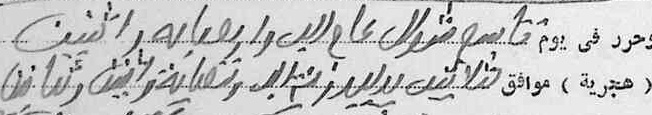 وحرر فى يوم تاسع شوال عام الف واربعمايه واثنين
( هجرية ) موافق ثلاثين يوليو سنة الف وتسعماية واثنين وثمانين